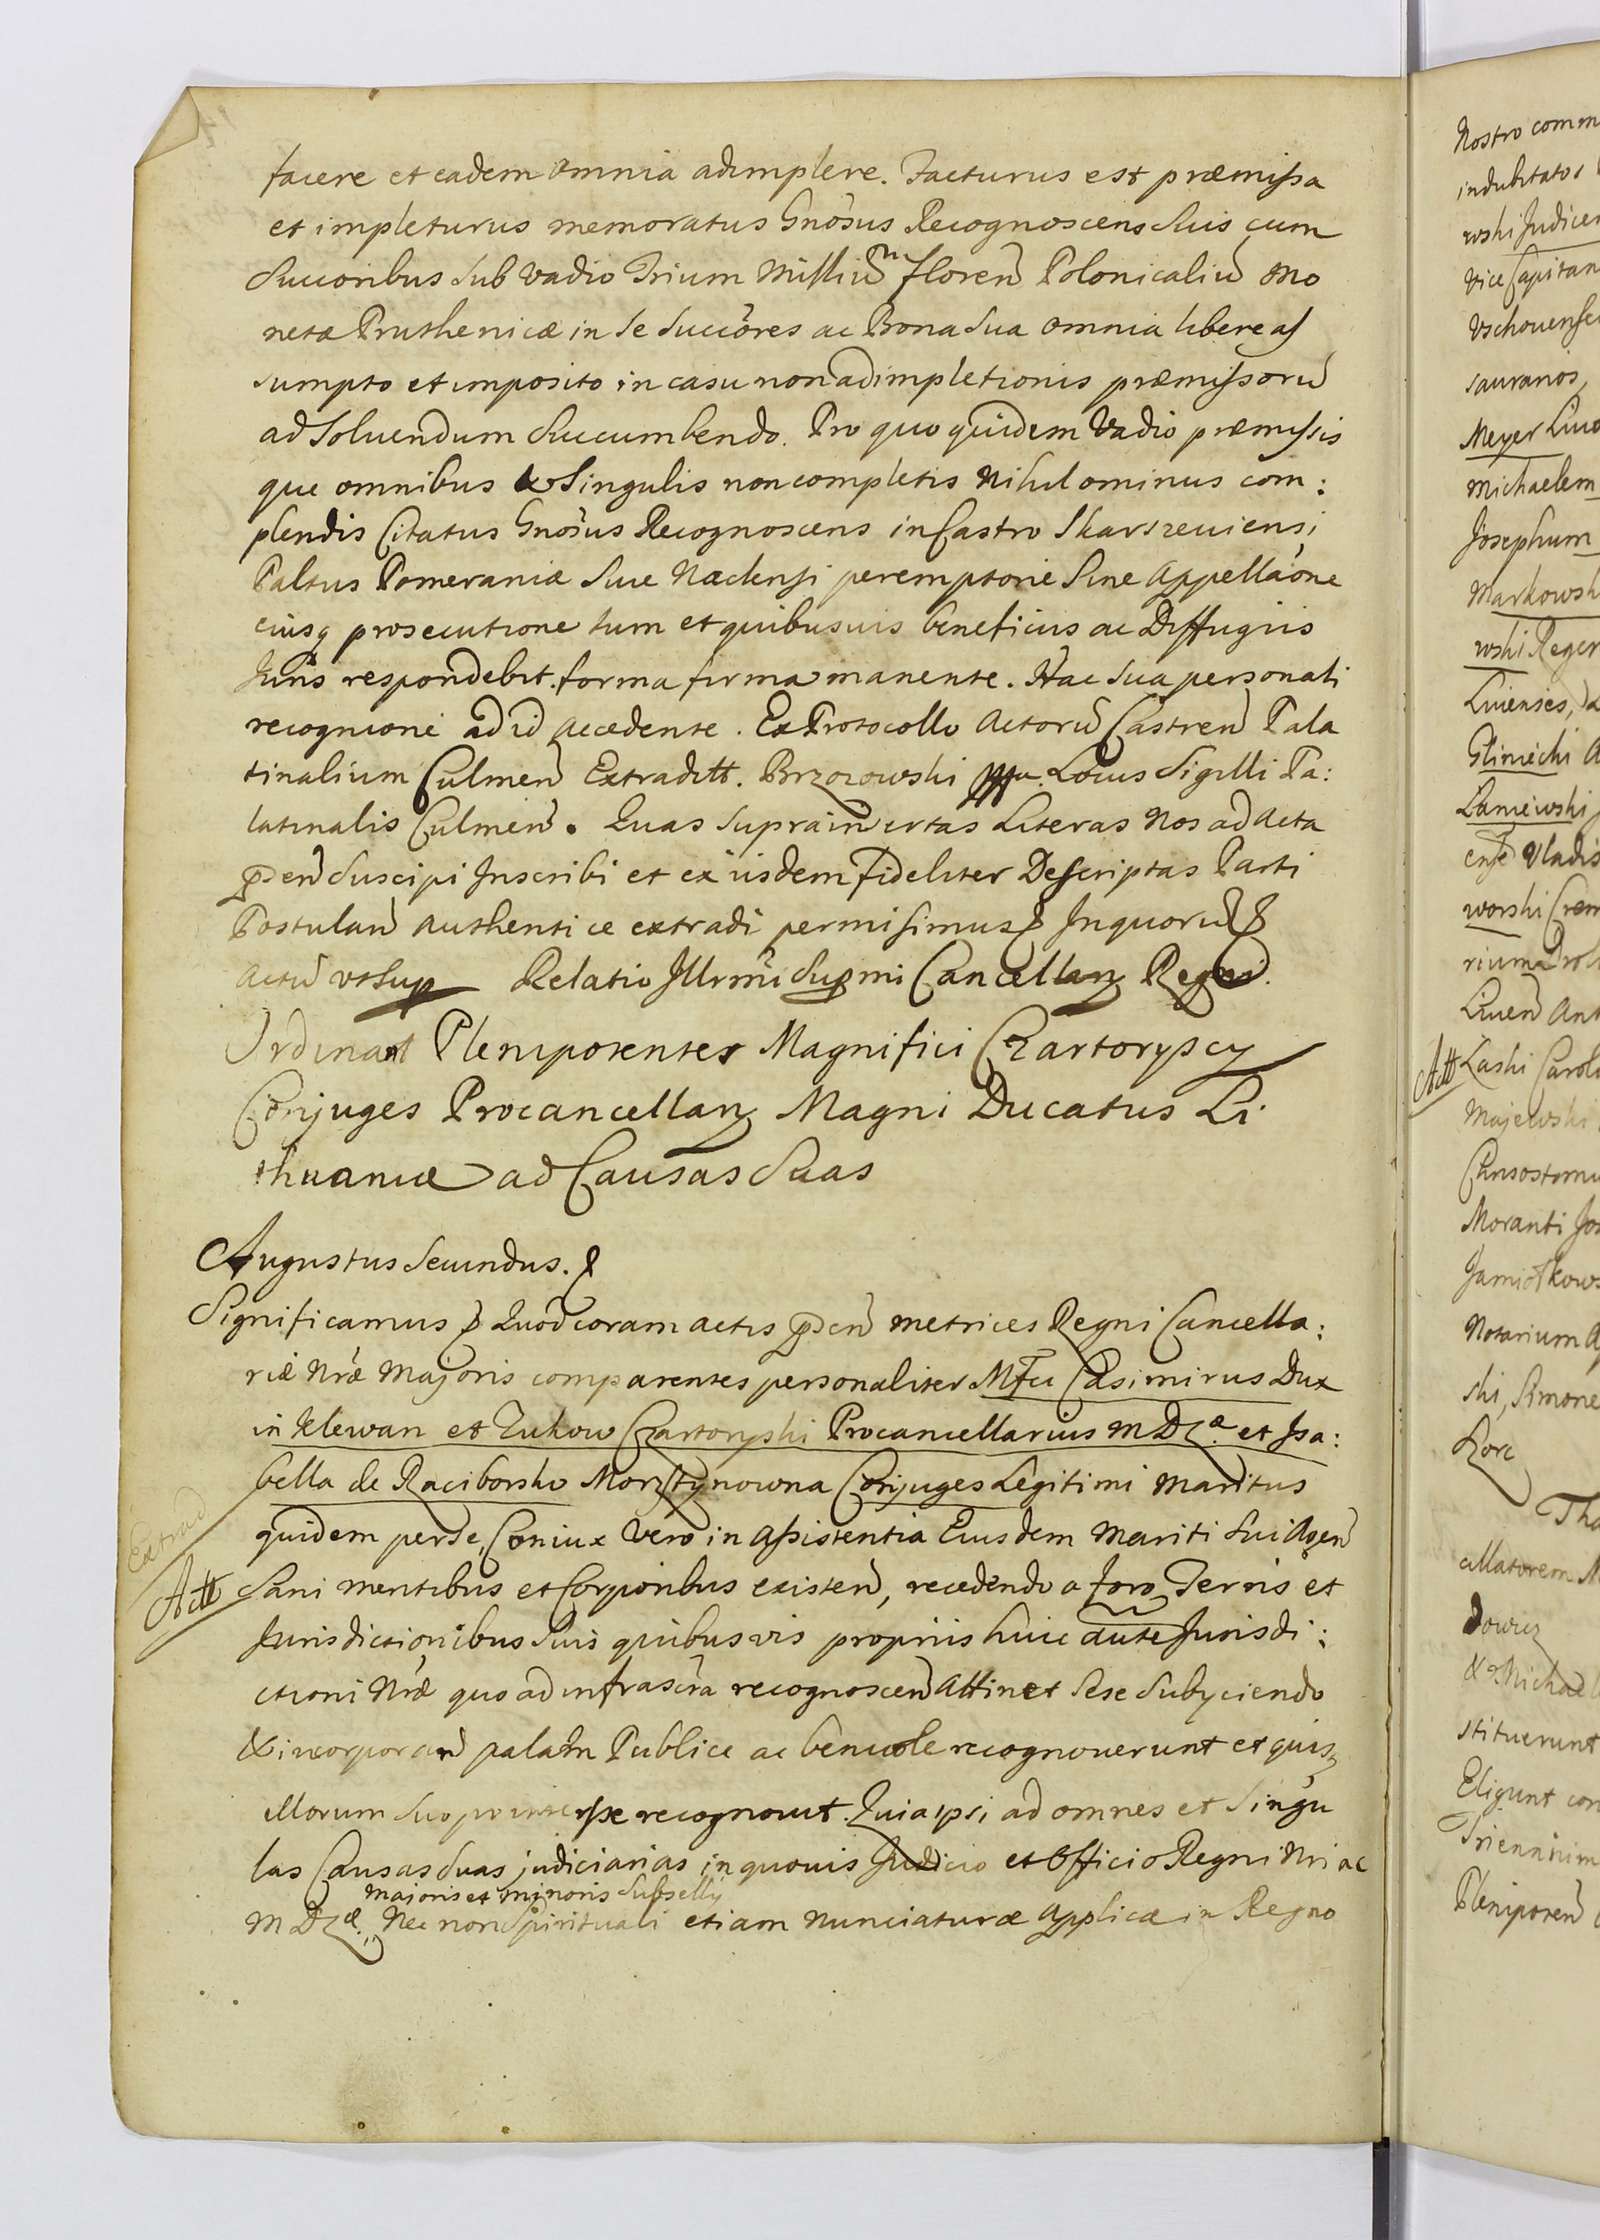 facere et eadem omnia adimplere. Facturus est præmissa
et impleturus memoratus Gnosus Recognoscens Suis cum
Successoribus Sub vadio Trium Milliū floreñ Polonicaliū Mo
netæ Pruthenicæ in se Succōres ac Bona Sua omnia libere as
sumpto et imposito in casu non adimpletionis præmissorū
ad Soluendum Succumbendo. Pro quo quidem Vadio præmissis
que omnibus & Singulis non completis nihilominus com:
plendis Citatus Gnosus Recognoscens in Castro Skarszeuiensi
Paltus Pomeraniæ Siue Naclensi peremptorie Sine Appellaone
eiusq prosecutione tum et quibusuis beneficiis ac Diffugiis
Juris respondebit. forma firma manente. Hac Sua personali
recognitione ad id accedente. Ex Protocollo Actorū Castreñ Pala
tinalium Culmeñ Extraditt. Brzozowski mpp. Locus Sigilli Pa:
latinalis Culmeñ. Quas Suprainsertas Literas Nos ad Acta
pñseñ Suscipi Inscribi et ex iisdem fideliter Descriptas Parti
Postulañ Authentice extradi permisimus & Inquorū &
Actū vt Sup Relatio Illrmi Supmi Cancellarij Regni.
Ordinant Plenipotentes Magnifici Czartoryscy
Conjuges Procancellarij Magni Ducatus Li
thuaniæ ad Causas Suas
Augustus Secundus. &
Significamus & Quod coram actis pñseñ metrices Regni Cancella:
riæ Nræ Majoris comparentes personaliter Mfci Casimirus Dux
in Klewan et Zukow Czartoryski Procancellarius M D L. et Isa:
bella de Raciborsko Morsztynowna Conjuges Legitimi Maritus
quidem per se, Coniux vero in Assistentia Eiusdem Mariti Sui Ageñ
Extrad
Att
Sani mentibus et Corporibus existeñ, recedendo a foro, Terris et
Jurisdictionibus Suis quibusvis propriis huic aute Jurisdi:
ctioni Nræ quo ad infrascra recognosceñ attinet Sese Subyciendo
& incorporañ palam Publice ac beniuole recognouerunt et quis
illorum Suo pro interesse recognouit. Quia ipsi ad omnes et Singu
las Causas Suas judiciarias in quouis Judicio et Officio Regni Nri ac
Majoris et minoris Subsellij
M D L. Nec non Spirituali etiam Nunciaturæ Applicæ in Regno
Nostro comm
indubitatos
wski Judicem
Vice Capitan
Vschouensem
sauranos,
Meyer Liuo
Michaelem
Josephum
Markowsk
wski Regen
Liuenses,
Glinicki A
Laniewski
ense Vladis
worski Crem
rium
Liuen Ant
Att
Laski Carol
Majewski
Chrisostomu
Moranti Jos
Jamiołkows
Notarium A
ski, Simone
Korc
Tho
cellatorem M
Dowicz
& Michael
stituerunt
Eligunt con
Trienniim
Plenipoten